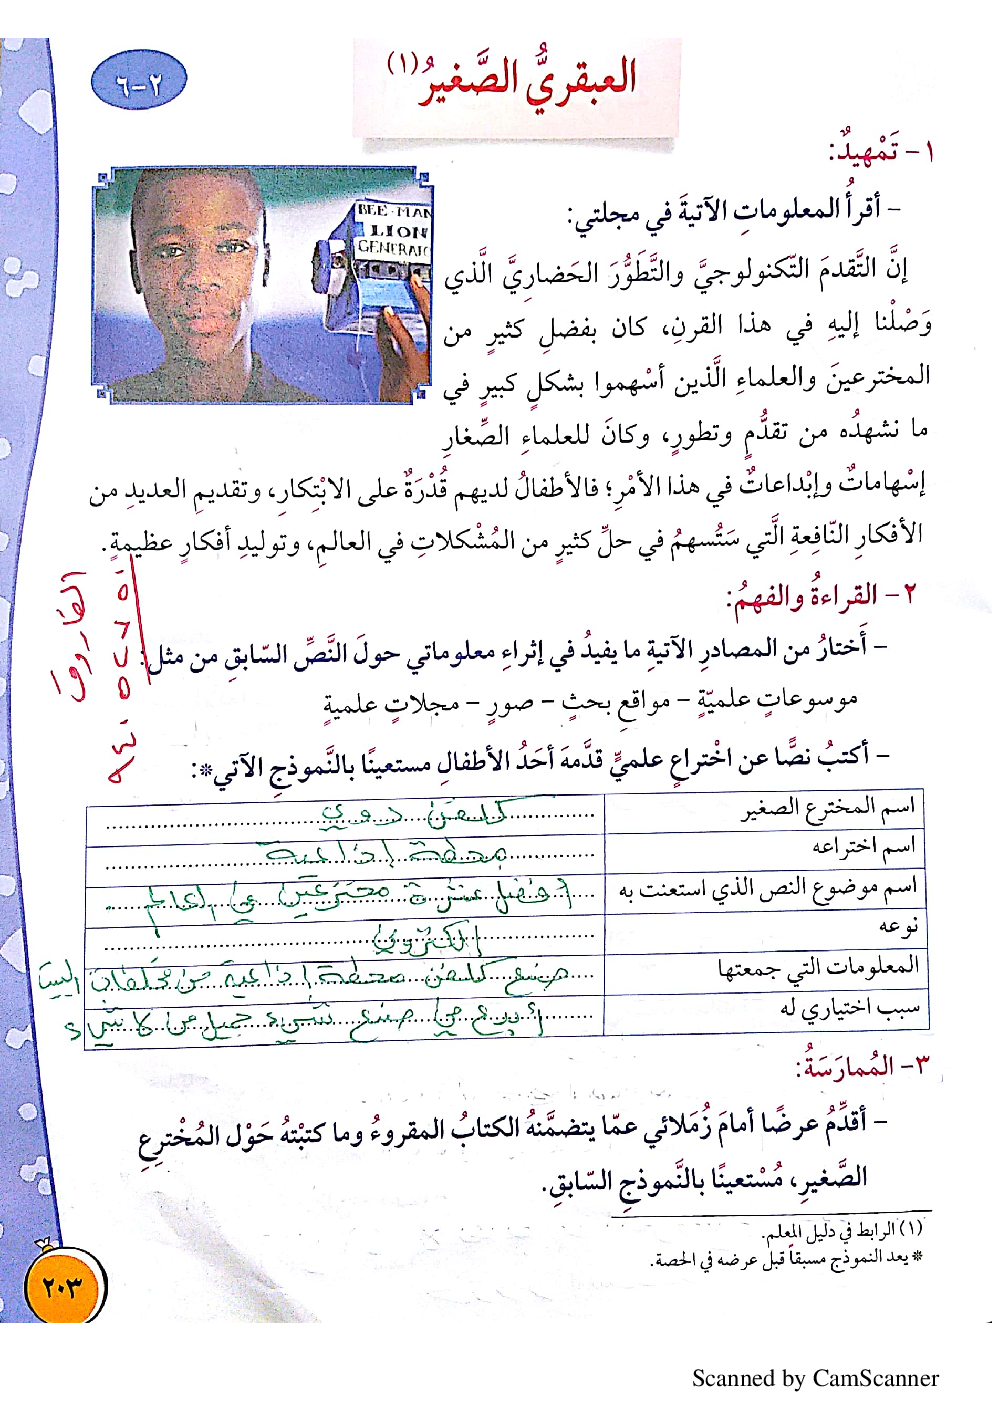 العبقريُّ الصَّغيرُ (١)
٢-٦
١- تَمْهيدٌ:
- أقرأُ المعلوماتِ الآتيةَ في مجلتي:
BEE-MAN
LION
GENERATO
إنَّ التَّقدمَ التّكنولوجيَّ والتَّطَوُّرَ الحَضاريَّ الَّذي
وَصْلْنا إليهِ في هذا القرنِ، كان بفضلِ كثيرٍ من
المخترعينَ والعلماءِ الَّذين أسْهموا بشكلٍ كبيرٍ في
ما نشهدُه من تقدُّمٍ وتطورٍ، وكانَ للعلماءِ الصِّغارِ
إسْهاماتٌ وإبْداعاتٌ في هذا الأمْرِ؛ فالأطفالُ لديهم قُدْرَةٌ على الابْتِكارِ، وتقديمِ العديدِ من
الأفكارِ النّافِعةِ الَّتي سَتُسهمُ في حلِّ كثيرٍ من المُشْكلاتِ في العالمِ، وتوليدِ أفكارٍ عظيمةٍ.
٢- القراءةُ والفهمُ:
- أَختارُ من المصادرِ الآتيةِ ما يفيدُ في إثراءِ معلوماتي حولَ النَّصِّ السّابقِ من مثل:
موسوعاتٍ علميّةٍ - مواقعِ بحثٍ - صورٍ - مجلاتٍ علميةٍ
- أكتبُ نصًّا عن اخْتراعٍ علميٍّ قدَّمهَ أحَدُ الأطفالِ مستعينًا بالنَّموذجِ الآتي*:
اسم المخترع الصغير كلفن دوي
اسم اختراعه محطة اذاعية
اسم موضوع النص الذي استعنت به افضل عشرة مخترعين في العالم
نوعه الكتروني
المعلومات التي جمعتها صنع كلفن محطة اذاعية من مخلفات البيت
سبب اختياري له ابدع من صنع شيء جميل من لا شيء
٣- المُمارَسَةُ:
- أقدِّمُ عرضًا أمامَ زُمَلائي عمّا يتضمَّنهُ الكتابُ المقروءُ وما كتبْتهُ حَوْل المُخْترعِ
الصَّغيرِ، مُسْتعينًا بالنَّموذجِ السّابقِ.
(١) الرابط في دليل المعلم.
* يعد النموذج مسبقاً قبل عرضه في الحصة.
٢٠٣
الفاروق
Scanned by CamScanner